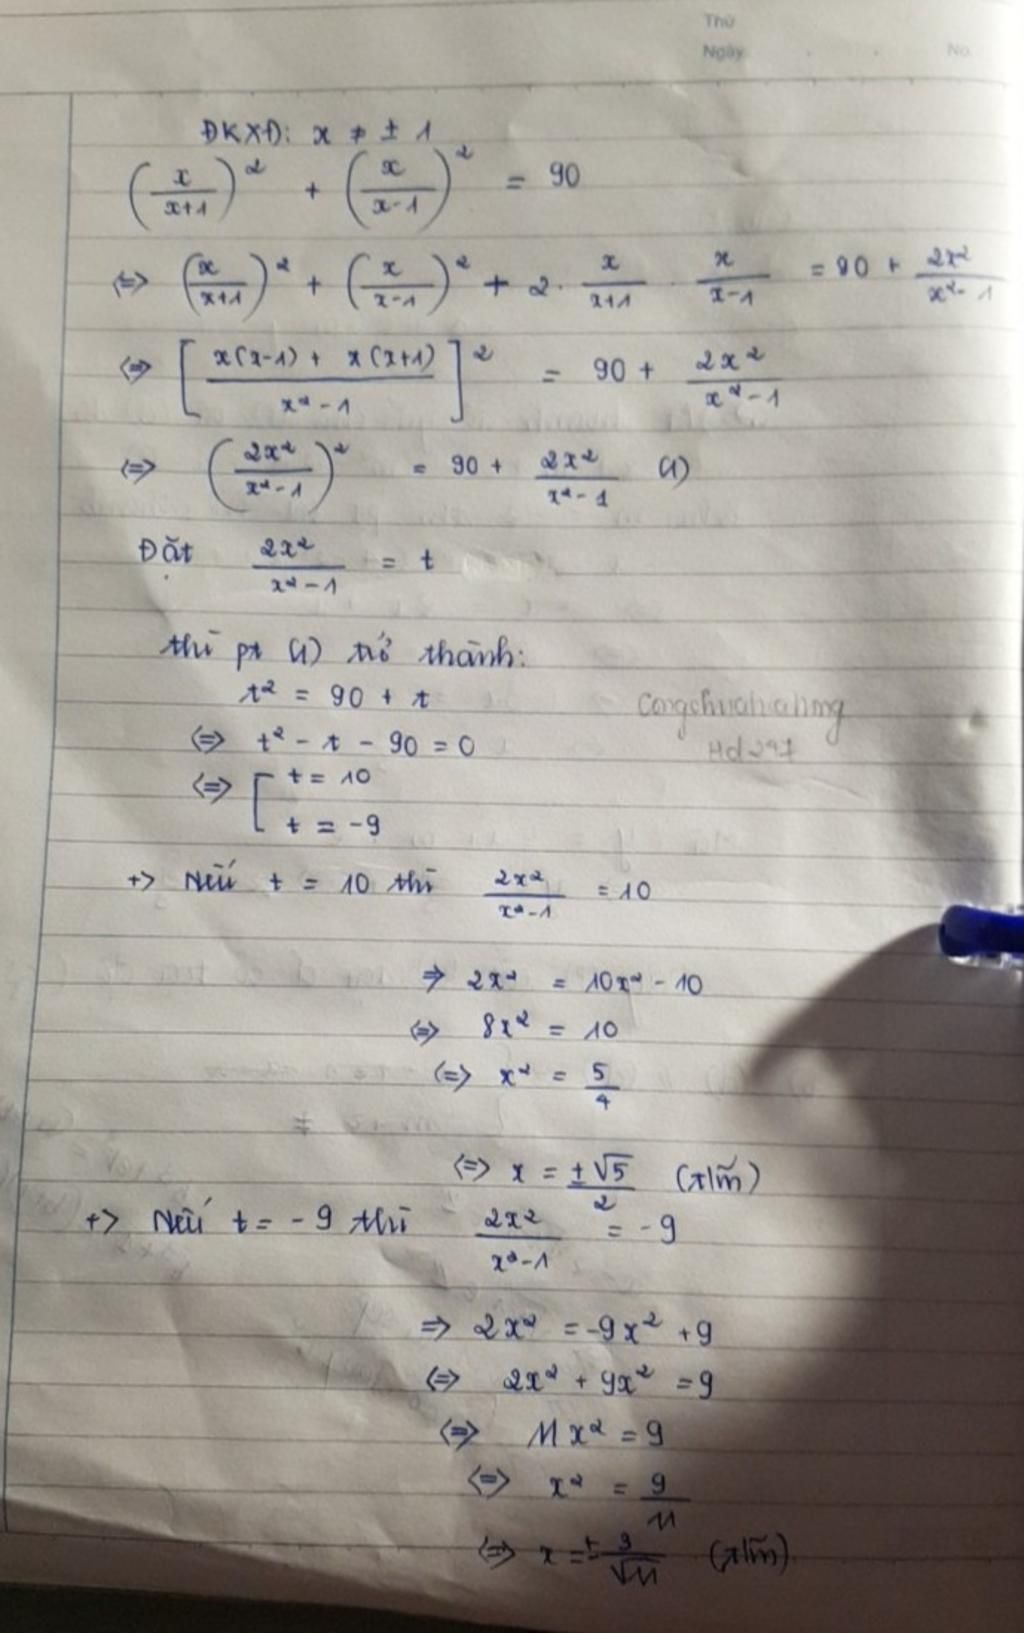 Thứ
Ngày No.
ĐKXĐ: x ≠ ± 1
(x/(x+1))² + (x/(x-1))² = 90
<=> (x/(x+1))² + (x/(x-1))² + 2. x/(x+1) . x/(x-1) = 90 + 2x²/(x²-1)
<=> [(x(x-1) + x(x+1))/(x²-1)]² = 90 + 2x²/(x²-1)
<=> (2x²/(x²-1))² = 90 + 2x²/(x²-1) (1)
Đặt 2x²/(x²-1) = t
thì pt (1) trở thành:
t² = 90 + t
<=> t² - t - 90 = 0
<=> [ t = 10
t = -9
+> Nếu t = 10 thì 2x²/(x²-1) = 10
=> 2x² = 10x² - 10
<=> 8x² = 10
<=> x² = 5/4
<=> x = ±√5/2 (t/m)
+> Nếu t = -9 thì 2x²/(x²-1) = -9
=> 2x² = -9x² + 9
<=> 2x² + 9x² = 9
<=> 11x² = 9
<=> x² = 9/11
<=> x = ± 3/√11 (t/m)